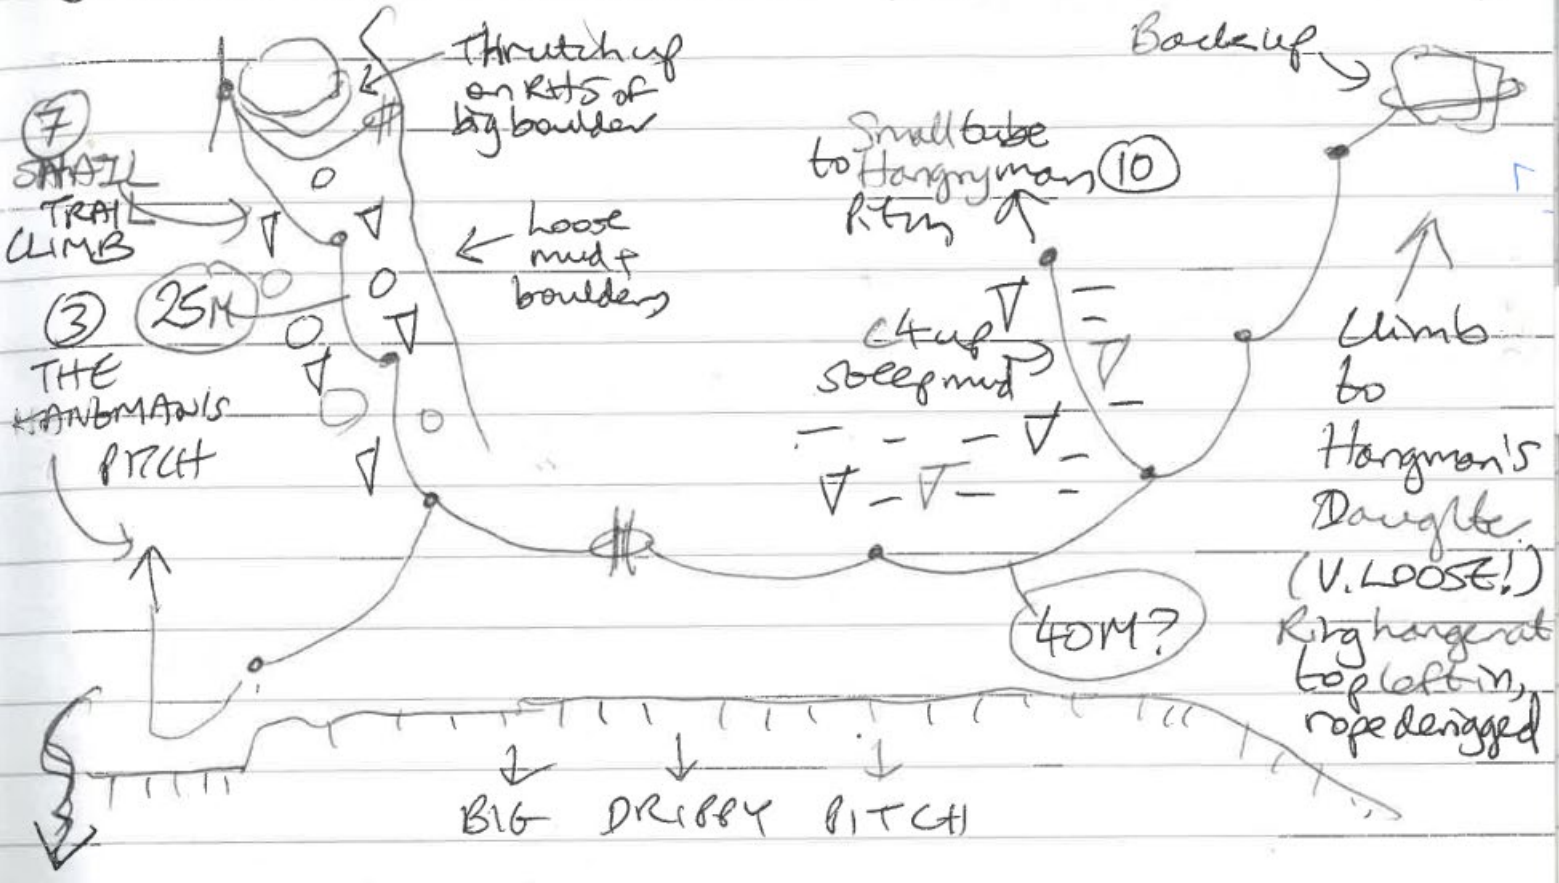 Thrutch up
on RHS of
big boulder
Backup
7
SNAIL
TRAIL
CLIMB
Small tube
to Hangryman 10
Pitch
Loose
mud +
boulders
3 25M
THE
HANGMAN'S
PITCH
C4 up
steep mud
Climb
to
Hangman's
Daughter
(V. LOOSE!)
Ring hanger at
top left in,
rope derigged
40M?
BIG DRIPPY PITCH